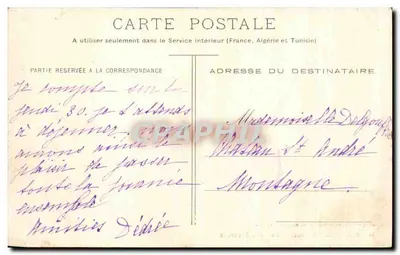 CARTE POSTALE
A utiliser seulement dans le Service intérieur (France, Algérie et Tunisie)
PARTIE RÉSERVÉE A LA CORRESPONDANCE
Je compte sur toi
jeudi 30. je t'attends
à dejeuner, nous
aurons ainsi le
plaisir de passer
toute la journée
ensemble
Amitiés Dédrée
ADRESSE DU DESTINATAIRE
Mademoiselle
St André
Montagne.